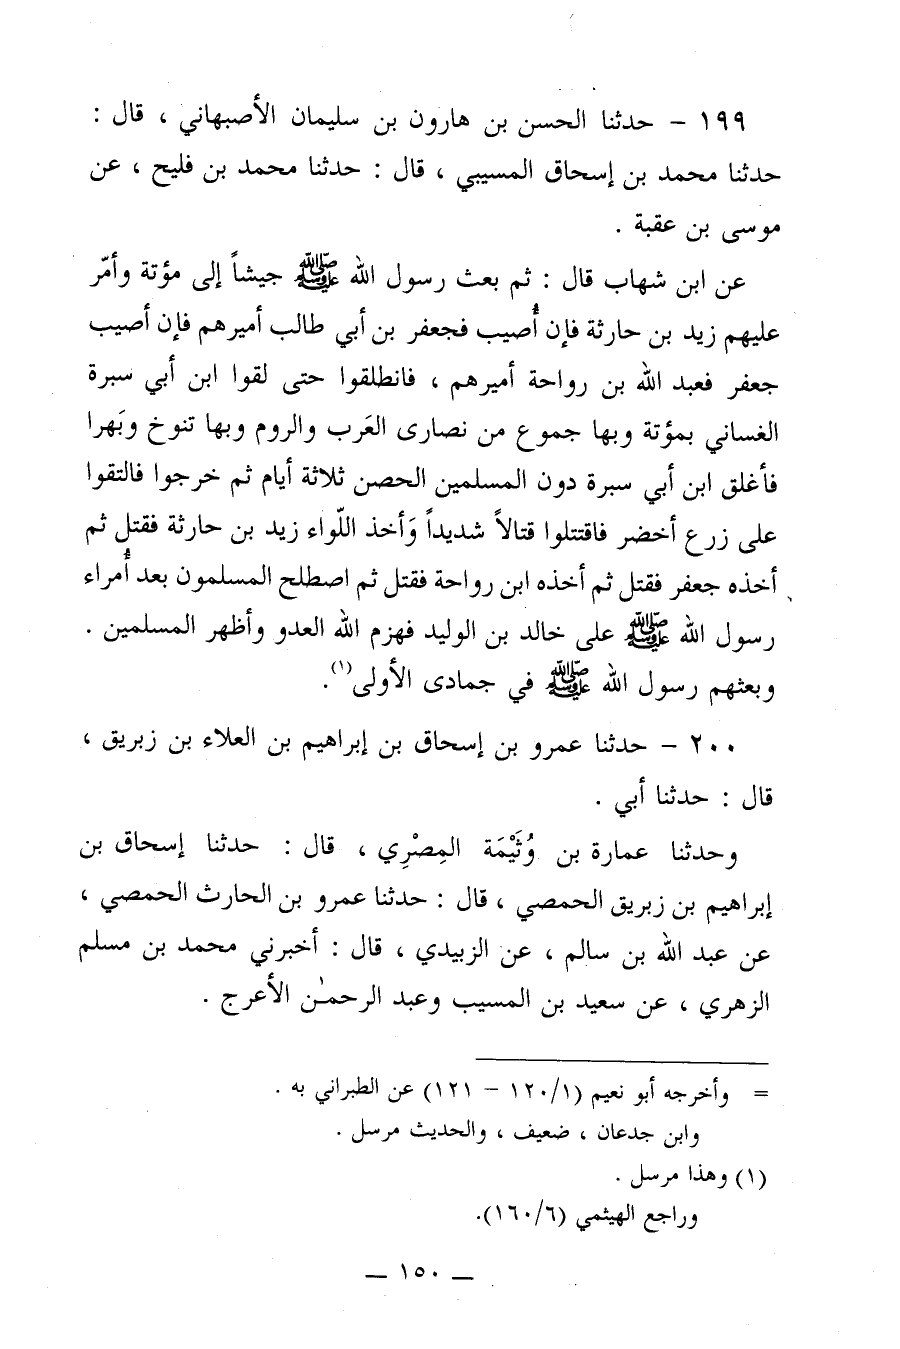 ١٩٩ - حدثنا الحسن بن هارون بن سليمان الأصبهاني ، قال :
حدثنا محمد بن إسحاق المسيبي ، قال : حدثنا محمد بن فليح ، عن
موسى بن عقبة .
عن ابن شهاب قال : ثم بعث رسول الله ﷺ جيشاً إلى مؤتة وأمّر
عليهم زيد بن حارثة فإن أُصيب فجعفر بن أبي طالب أميرهم فإن أصيب
جعفر فعبد الله بن رواحة أميرهم ، فانطلقوا حتى لقوا ابن أبي سبرة
الغساني بمؤتة وبها جموع من نصارى العَرب والروم وبها تنوخ وبَهرا
فأغلق ابن أبي سبرة دون المسلمين الحصن ثلاثة أيام ثم خرجوا فالتقوا
على زرع أخضر فاقتتلوا قتالاً شديداً وَأخذ اللّواء زيد بن حارثة فقتل ثم
أخذه جعفر فقتل ثم أخذه ابن رواحة فقتل ثم اصطلح المسلمون بعد أُمراء
رسول الله ﷺ على خالد بن الوليد فهزم الله العدو وأظهر المسلمين .
وبعثهم رسول الله ﷺ في جمادى الأولى(١).
٢٠٠ - حدثنا عمرو بن إسحاق بن إبراهيم بن العلاء بن زبريق ،
قال : حدثنا أبي .
وحدثنا عمارة بن وُثَيْمَة المِصْرِي ، قال : حدثنا إسحاق بن
إبراهيم بن زبريق الحمصي ، قال : حدثنا عمرو بن الحارث الحمصي ،
عن عبد الله بن سالم ، عن الزبيدي ، قال : أخبرني محمد بن مسلم
الزهري ، عن سعيد بن المسيب وعبد الرحمٰن الأعرج .
= وأخرجه أبو نعيم (١/ ١٢٠ - ١٢١) عن الطبراني به .
وابن جدعان ، ضعيف ، والحديث مرسل .
(١) وهذا مرسل .
وراجع الهيثمي (٦/ ١٦٠).
— ١٥٠ —